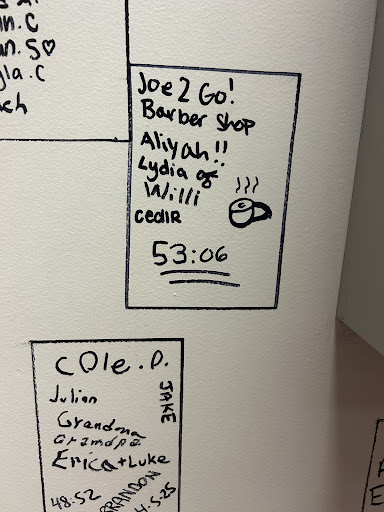 n.C
an.S♡
gla.C
ach
Joe 2 Go!
Barber Shop
Aliyah!!
Lydia of
Willi
CedIR
53:06
COle.D.
Julian
JAKE
Grandma
Grandpa
Erica+Luke
48:52
BRANDON
4-5-25
E